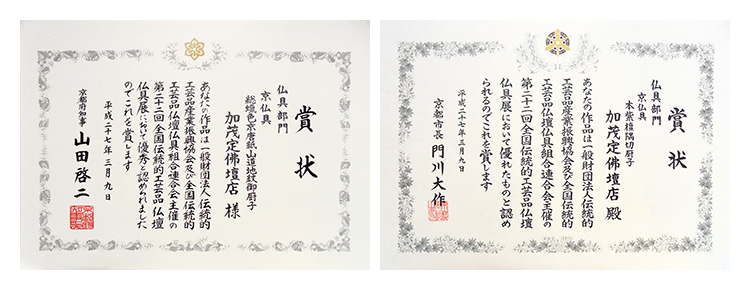 賞状
仏具部門
京仏具
総蠟色京唐紙山道地紋御厨子
加茂定佛壇店 様
あなたの作品は一般財団法人伝統的
工芸品産業振興協会及び全国伝統的
工芸品仏壇仏具組合連合会主催の
第二十二回全国伝統的工芸品仏壇
仏具展において優秀と認められました
のでこれを賞します
平成二十七年三月九日
京都府知事 山田啓二
賞状
仏具部門
京仏具
本紫檀隅切厨子
加茂定佛壇店 殿
あなたの作品は一般財団法人伝統的
工芸品産業振興協会及び全国伝統的
工芸品仏壇仏具組合連合会主催の
第二十二回全国伝統的工芸品仏壇
仏具展において優れたものと認め
られるのでこれを賞します
平成二十七年三月九日
京都市長 門川大作